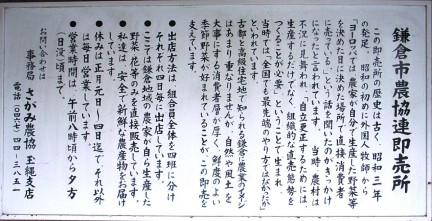 鎌倉市農協連即売所
この即売所の歴史は古く、昭和三年
の発足。昭和の初めに外国人牧師から
「ヨーロッパでは、農家が自分で生産した野菜等
を決めた日に決めた場所で直接消費者
に売っている。」という話を聞いたのがきっかけ
になったと言われています。当時、農村は
不況に見舞われ、自立更正するためには、
生産するだけでなく、組織的な直売態勢を
つくることが必要、ということで生まれ、
当時では、全国でも最先端のやり方ではなかったか
といわれています。
古都と高級住宅地で知られる鎌倉に農家のイメージ
はあまり重なりませんが、自然や風土を
大事にする消費者層が厚く、鮮度のよい
季節野菜が好まれていることが、この即売を
支えています。
●出店方法は、組合員全体を四班に分け
それぞれ四日毎に出店しています。
●ここでは鎌倉地域の農家が自ら生産した
野菜、花等のみを直接販売しています。
●私達は、安全で新鮮な農産物をお届け
しています。
●休みは、一月一元日〜四日迄で、それ以外
は毎日営業しています。
●営業時間は、午前八時頃から夕方
(日没)頃まで。
お問い合わせは
事務局 さがみ農協 玉縄支店
電話(〇四六七)四四―三八五一